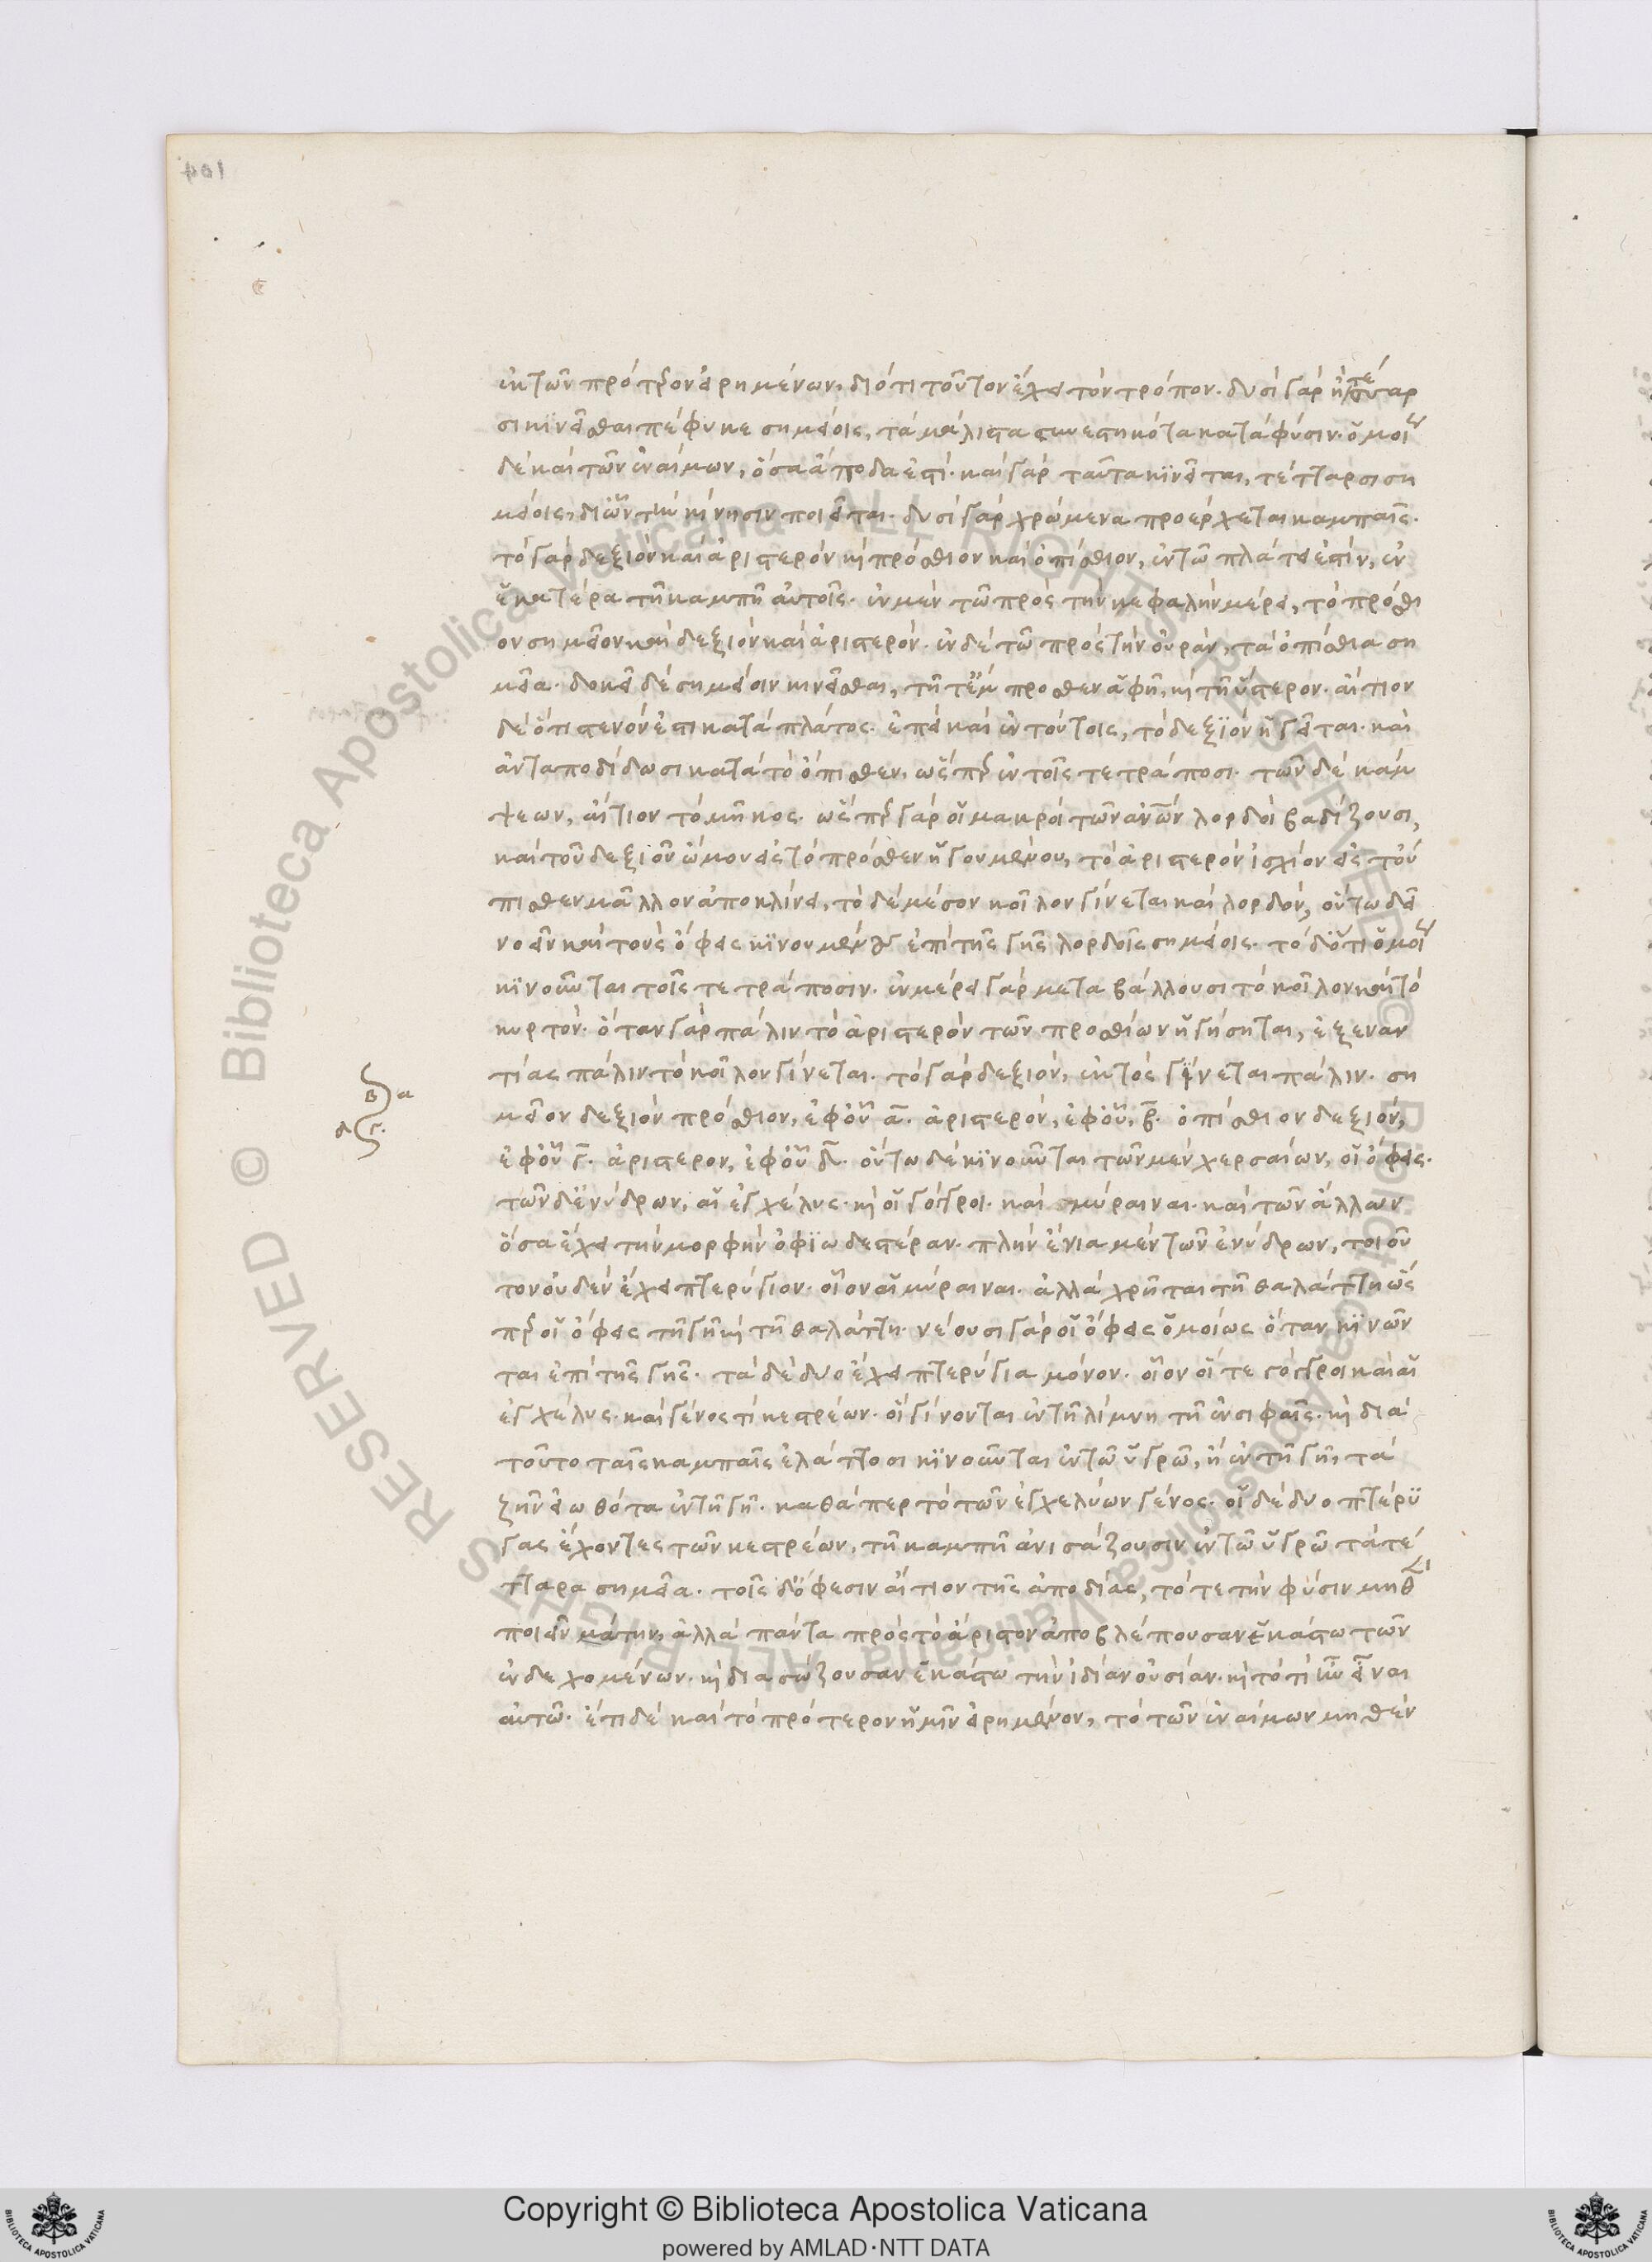 ἐκ τῶν πρότερον εἰρημένων, διότι τοῦτον ἔχει τὸν τρόπον. δυσὶ γὰρ ἢ τέταρ
σι κϊνεῖσθαι πέφυκε σημείοις, τὰ μάλιστα συνεστηκότα κατὰ φύσιν. ὁμοίως
δὲ καὶ τῶν ἐναίμων, ὅσα ἄποδα ἐστί. καὶ γὰρ ταῦτα κϊνεῖται, τέτταρσι ση
μείοις, δι ὧν τὴν κίνησιν ποιεῖται. δυσὶ γὰρ χρώμενα προέρχεται καμπαῖς.
τὸ γὰρ δεξιὸν καὶ ἀριστερὸν καὶ πρόσθιον καὶ ὀπίσθιον, ἐν τῶ πλάτει ἐστὶν, ἐν
ἑκατέρα τῆ καμπῆ αὐτοῖς. ἐν μὲν τῶ πρὸς τὴν κεφαλὴν μέρει, τὸ πρόσθι
ον σημεῖον καὶ δεξιὸν καὶ ἀριστερόν. ἐν δὲ τῶ πρὸς τὴν οὐρὰν, τὰ ὀπίσθια ση
μεῖα. δοκεῖ δὲ σημείοιν κινεῖσθαι, τῆ τ ἔμπροσθεν ἁφῆ, καὶ τῆ ὕστερον. αἴτιον
δὲ ὅτι στενόν ἐστι κατὰ πλάτος. ἐπεὶ καὶ ἐν τούτοις, τὸ δεξϊὸν ἡγεῖται. καὶ
ἀνταποδίδωσι κατὰ τὸ ὄπισθεν, ὥσπερ ἐν τοῖς τετράποσι. τῶν δὲ κάμ
ψεων, αἴτιον τὸ μῆκος. ὥσπερ γὰρ οἱ μακροὶ τῶν ἀνῶν λορδοὶ βαδίζουσι,
καὶ τοῦ δεξιοῦ ὤμου εἰς τὸ πρόσθεν ἡγουμένου, τὸ ἀριστερὸν ἰσχίον εἰς τοὔ
πισθεν μᾶλλον ἀποκλίνει, τὸ δὲ μέσον κοῖλον γίνεται καὶ λορδόν, οὕτω δεῖ
νοεῖν καὶ τοὺς ὄφεις κϊνουμένους ἐπὶ τῆς γῆς λορδοῖς σημείοις. τὸ δ ὅτι ὁμοίως
κϊνοῦνται τοῖς τετράποσιν. ἐν μέρει γὰρ μεταβάλλουσι τὸ κοῖλον καὶ τὸ
κυρτόν. ὅταν γὰρ πάλιν τὸ ἀριστερὸν τῶν προσθίων ἡγήσηται, ἐξεναν
τίας πάλιν τὸ κοῖλον γίνεται. τὸ γὰρ δεξιὸν, ἐκτὸς γίνεται πάλιν. ση
β α
μεῖον δεξιὸν πρόσθιον, ἐφ οὗ α. ἀριστερόν, ἐφ οὗ, β. ὀπίσθιον δεξιόν,
δ γ.
ἐφ οὗ γ. ἀριστερον, ἐφ οὗ δ. οὕτω δὲ κϊνοῦνται τῶν μὲν χερσαίων, οἱ ὄφεις.
τῶν δ ἐνύδρων, αἱ ἐγχέλυς. καὶ οἱ γόγγροι. καὶ σμύραιναι. καὶ τῶν ἄλλων
ὅσα ἔχει τὴν μορφὴν ὀφϊωδεστέραν. πλὴν ἔνια μὲν τῶν ἐνύδρων, τοιοῦ
τον οὐδὲν ἔχει πτερύγιον. οἷον αἱ μύραιναι. ἀλλὰ χρῆται τῆ θαλάττη ὥς
περ οἱ ὄφεις τῆ γῆ καὶ τῆ θαλάττη. νέουσι γὰρ οἱ ὄφεις ὁμοίως ὅταν κϊνῶν
ται ἐπὶ τῆς γῆς. τὰ δὲ δυο ἔχει πτερύγια μόνον. οἷον οἵ τε γόγγροι καὶ αἱ
ἐγχέλυς. καὶ γένος τὶ κεστρέων. οἳ γίνονται ἐν τῆ λίμνη τῆ ἐν σιφαῖς. καὶ διὰ
τοῦτο ταῖς καμπαῖς ἐλάττοσι κϊνοῦνται ἐν τῶ ὑγρῶ, ἢ ἐν τῆ γῆ, τὰ
ζῆν εἰωθότα ἐν τῆ γῆ. καθάπερ τὸ τῶν ἐγχελύων γένος. οἱ δὲ δυο πτέρυ
γας ἔχοντες τῶν κεστρέων, τῆ καμπῆ ἀνισάζουσιν ἐν τῶ ὑγρῶ τὰ τέ
τταρα σημεῖα. τοῖς δ ὄφεσιν αἴτιον τῆς ἀποδίας, τό τε τὴν φύσιν μηθὲν
ποιεῖν μάτην, ἀλλὰ πάντα πρὸς τὸ ἄριστον ἀποβλέπουσαν ἑκάστω τῶν
ἐνδεχομένων. καὶ διασώζουσαν ἑκάστω τὴν ἰδίαν οὐσίαν. καὶ τὸ τί ἦν εἶναι
αὐτῶ. ἔτι δὲ καὶ τὸ πρότερον ἡμῖν εἰρημένον, τὸ τῶν ἐναίμων μηθὲν
104
Copyright © Biblioteca Apostolica Vaticana
powered by AMLAD·NTT DATA